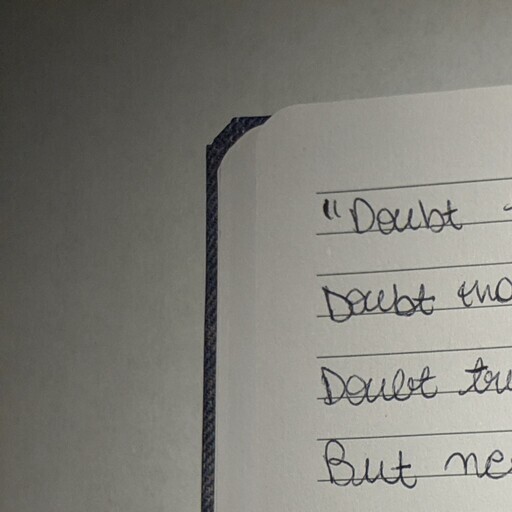 "Doubt
Doubt tha
Doubt tru
But ne